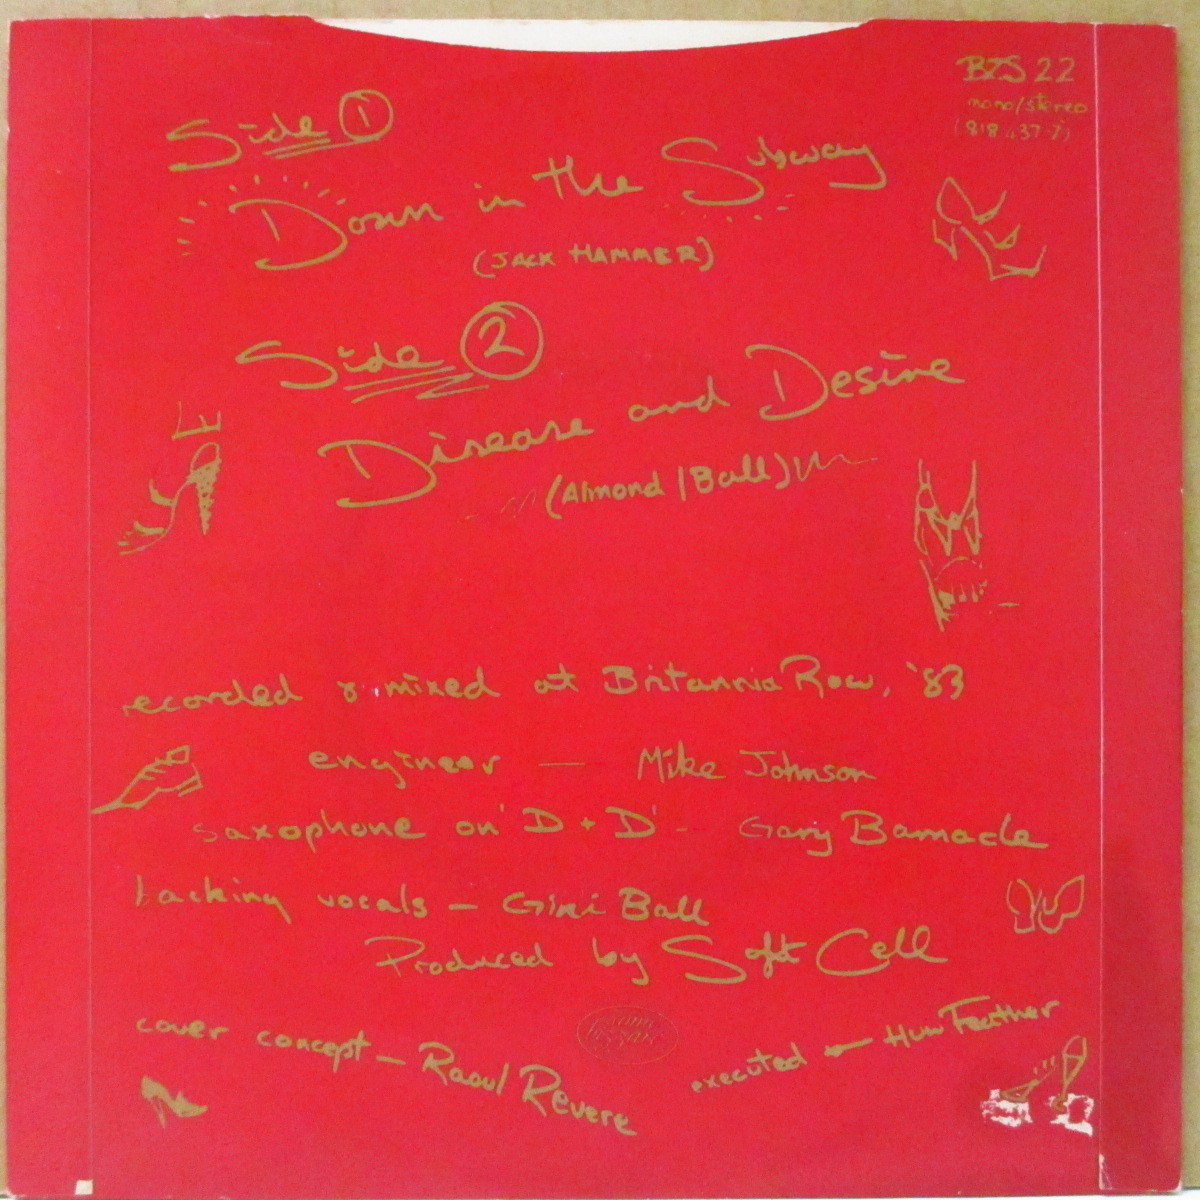 BZS 22
mono/stereo
(818 437-7)
Side 1
Down in the Subway
(JACK HAMMER)
Side 2
Disease and Desire
(Almond/Ball)
recorded & mixed at Britannia Row, '83
engineer — Mike Johnson
saxophone on 'D + D' - Gary Barnacle
backing vocals — Gini Ball
Produced by Soft Cell
cover concept — Raoul Revere
executed — Huw Feather